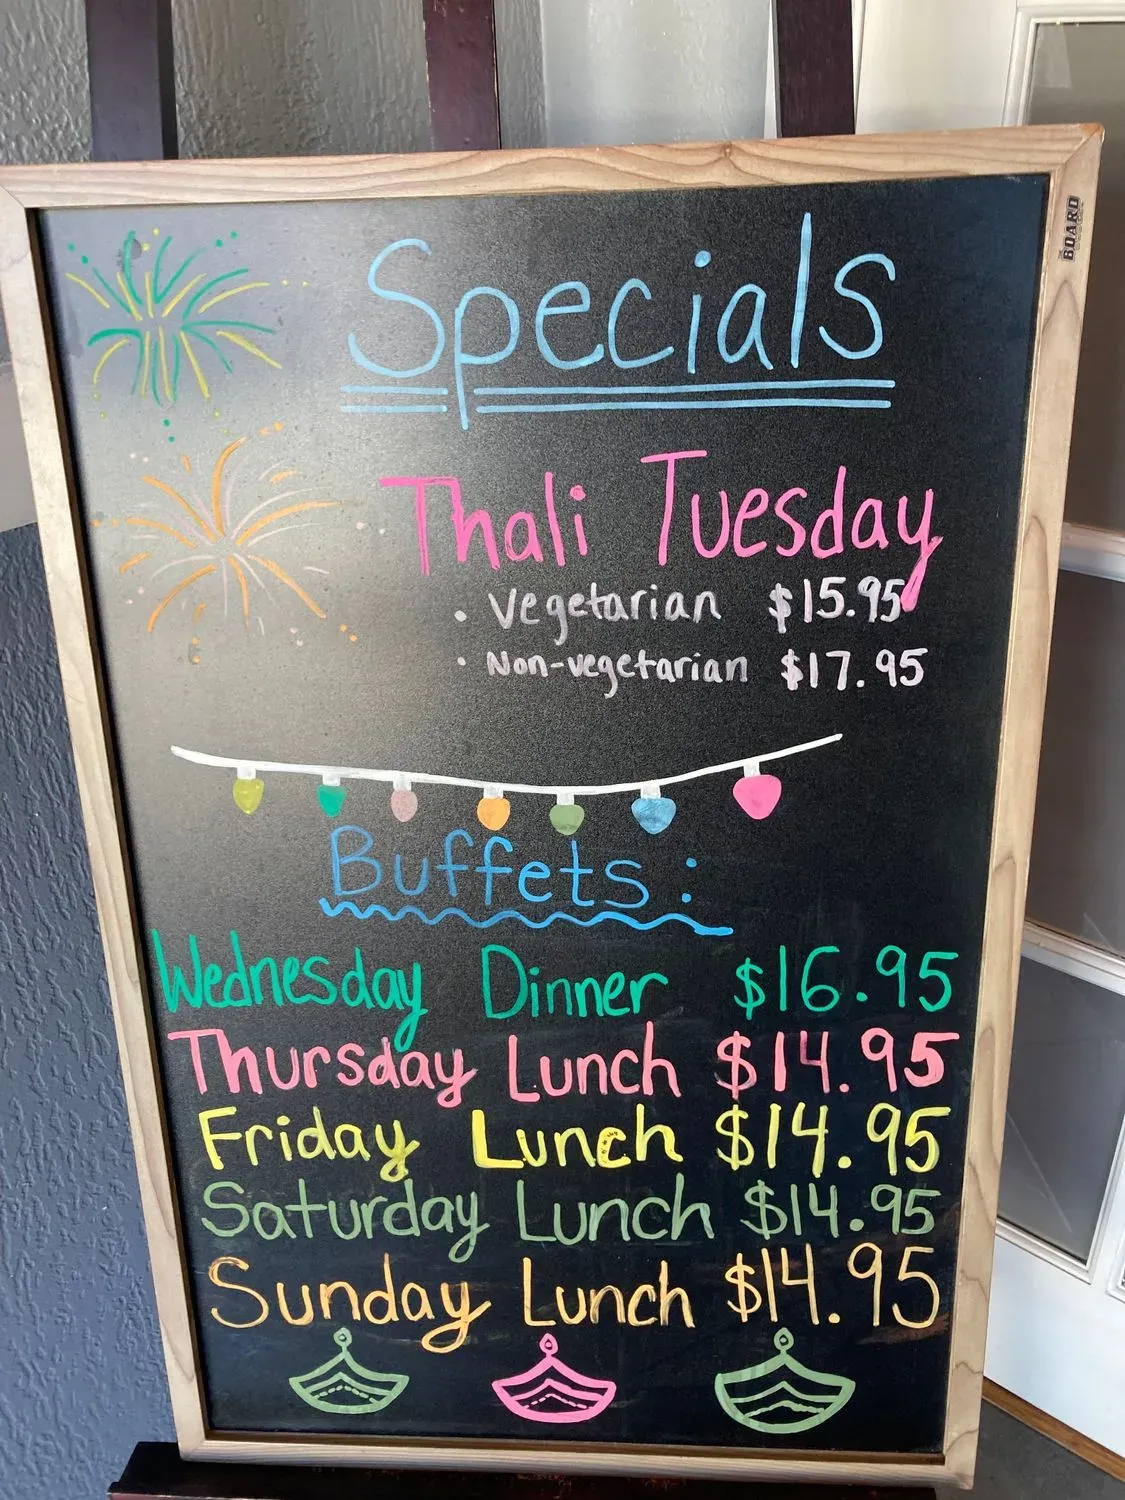 BOARD
Specials
Thali Tuesday
• Vegetarian $15.95
• Non-vegetarian $17.95
Buffets:
Wednesday Dinner $16.95
Thursday Lunch $14.95
Friday Lunch $14.95
Saturday Lunch $14.95
Sunday Lunch $14.95